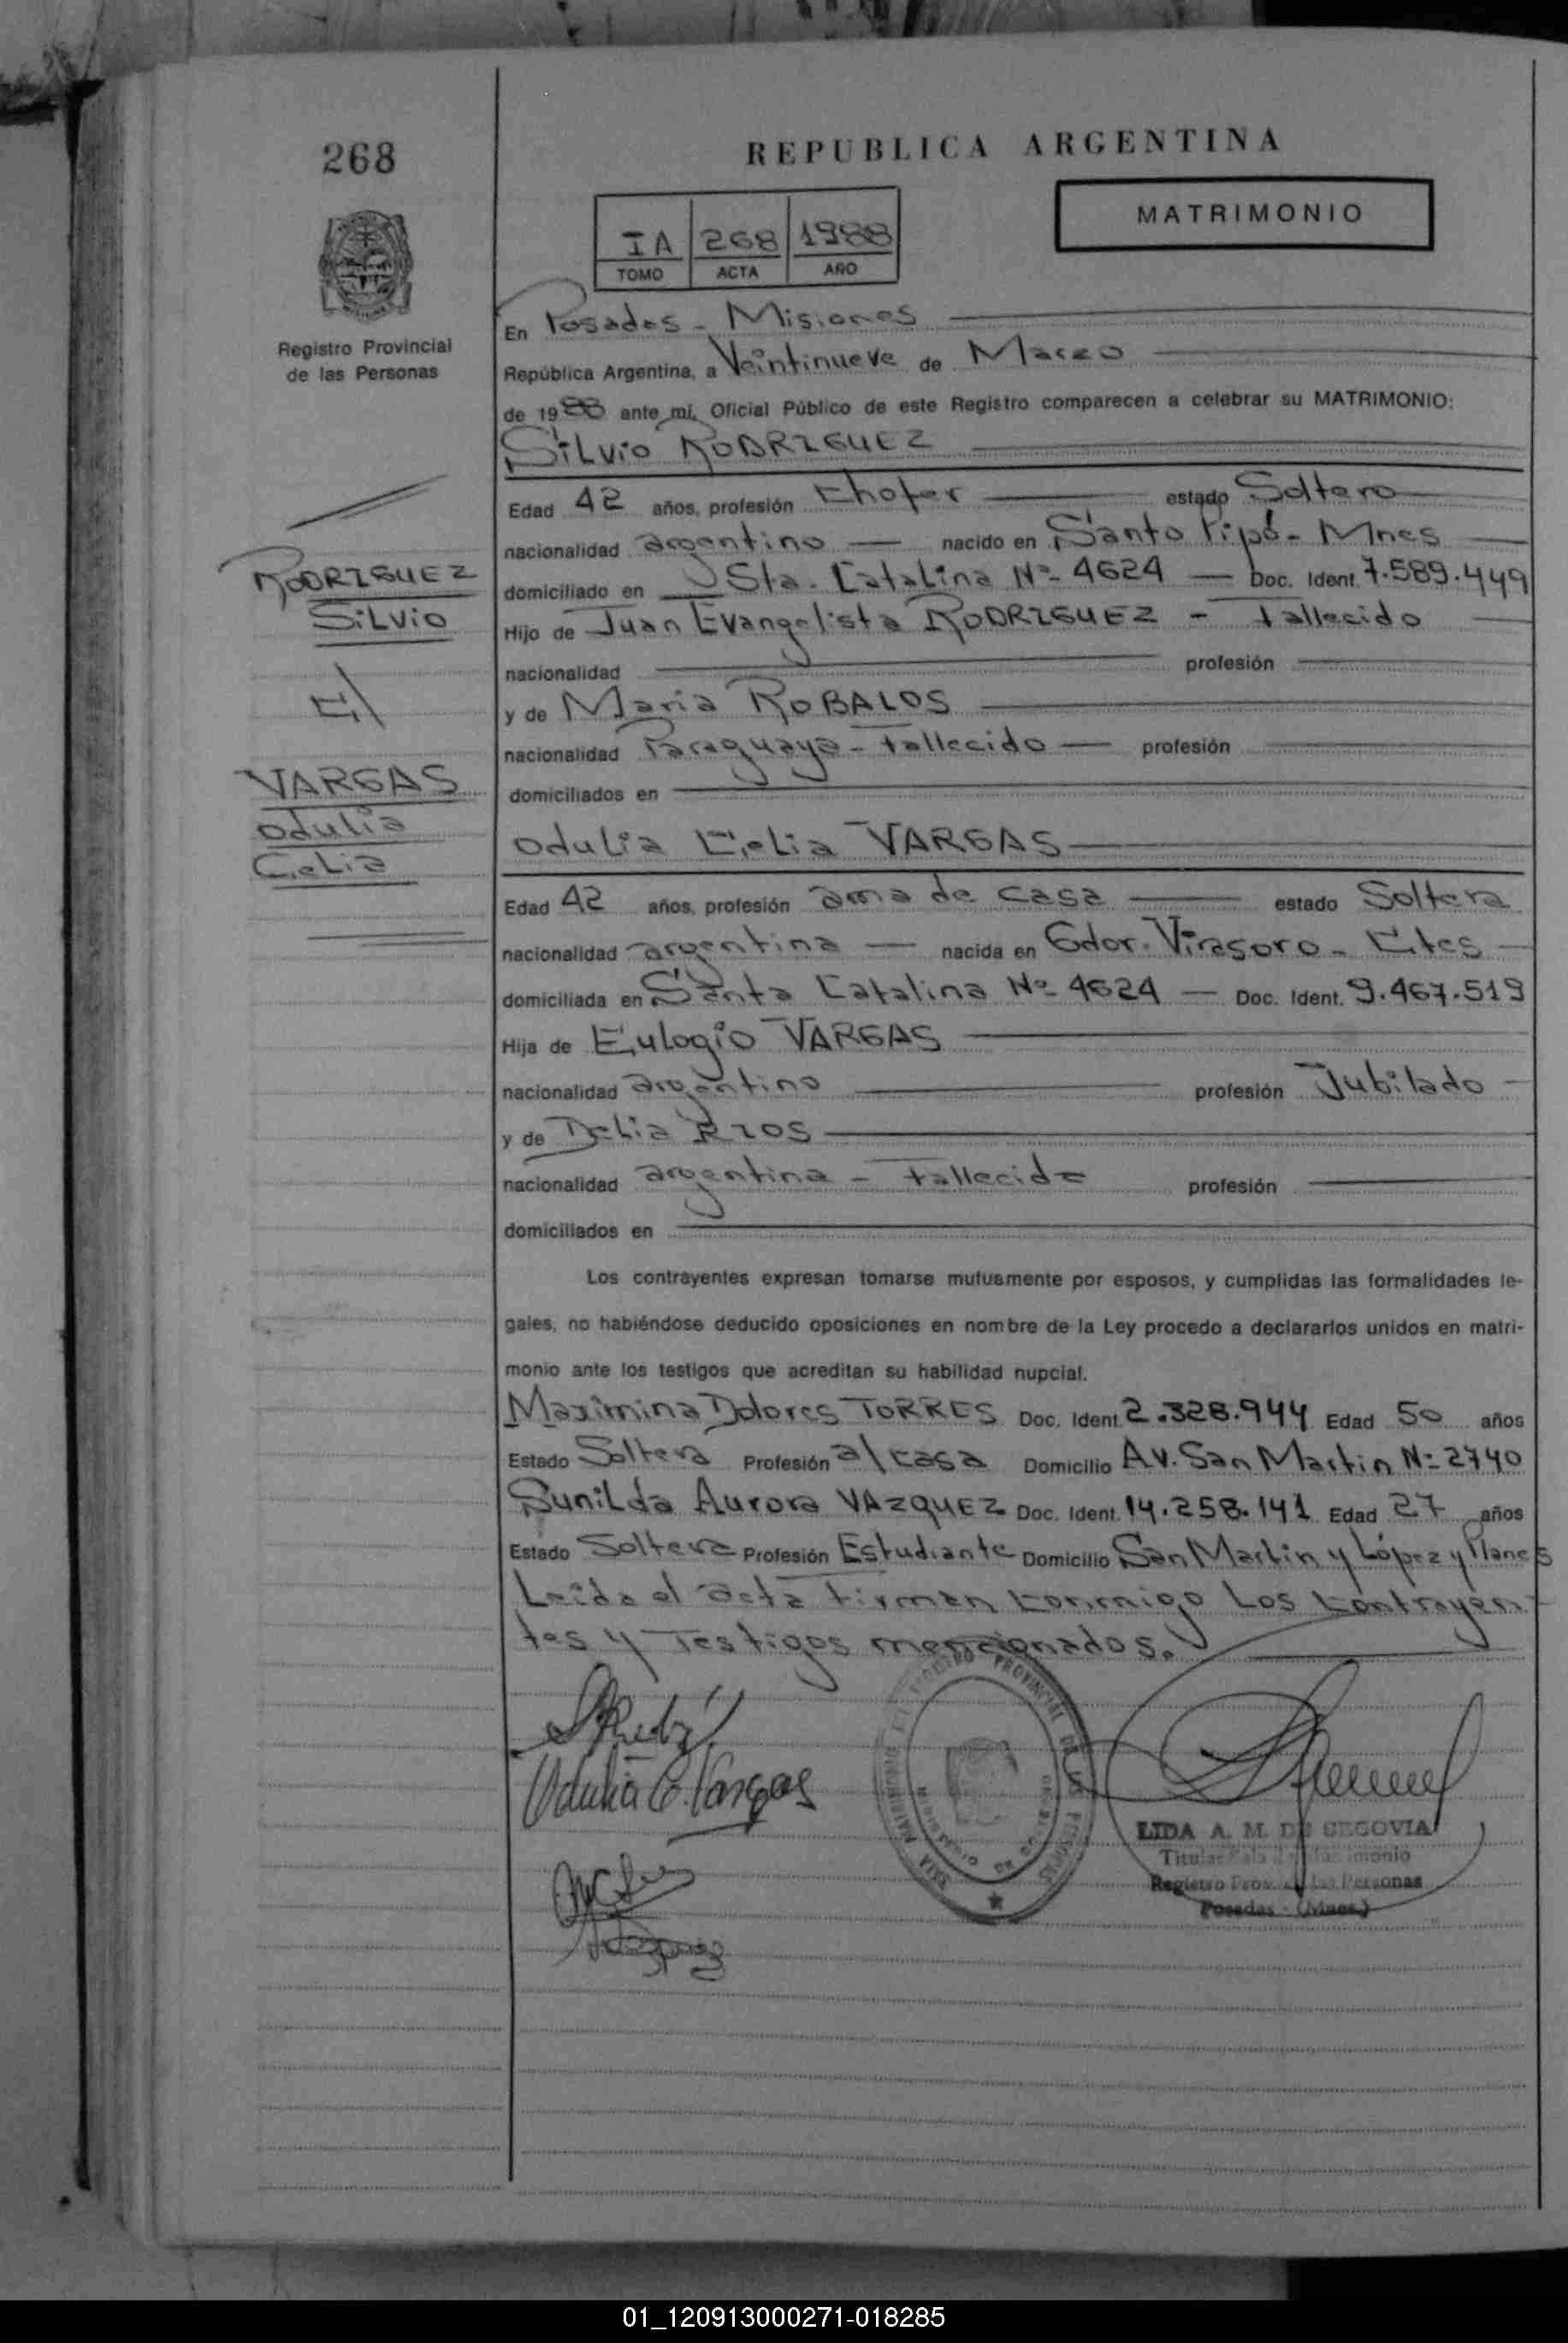 268
REPUBLICA ARGENTINA
MATRIMONIO
IA 268 1988
TOMO ACTA AÑO
Registro Provincial
de las Personas
En Posadas - Misiones
República Argentina, a Veintinueve de Marzo
de 1988 ante mí, Oficial Público de este Registro comparecen a celebrar su MATRIMONIO:
Silvio RODRIGUEZ
Edad 42 años, profesión Chofer estado Soltero
nacionalidad argentino nacido en Santo Pipó - Mnes
domiciliado en Sta. Catalina Nº 4624 Doc. Ident. 7.589.449
Hijo de Juan Evangelista RODRIGUEZ - Fallecido
nacionalidad profesión
y de Maria ROBALOS
nacionalidad Paraguaya - Fallecido profesión
domiciliados en
RODRIGUEZ
Silvio
c/
VARGAS
Odulia
Celia
Odulia Celia VARGAS
Edad 42 años, profesión ama de casa estado Soltera
nacionalidad argentina nacida en Gdor. Virasoro - Ctes
domiciliada en Santa Catalina Nº 4624 Doc. Ident. 9.467.519
Hija de Eulogio VARGAS
nacionalidad argentino profesión Jubilado
y de Delia RIOS
nacionalidad argentina - Fallecida profesión
domiciliados en
Los contrayentes expresan tomarse mutuamente por esposos, y cumplidas las formalidades le-
gales, no habiéndose deducido oposiciones en nombre de la Ley procedo a declararlos unidos en matri-
monio ante los testigos que acreditan su habilidad nupcial.
Maximina Dolores TORRES Doc. Ident. 2.328.944 Edad 50 años
Estado Soltera Profesión a/casa Domicilio Av. San Martin Nº 2740
Sunilda Aurora VAZQUEZ Doc. Ident. 14.258.141 Edad 27 años
Estado Soltera Profesión Estudiante Domicilio San Martin y López y Planes
Leida el acta Firman conmigo Los contrayen-
tes y Testigos mencionados.
Odulia C. Vargas
PROVINCIAL DE LAS PERSONAS
LIDA A. M. DE SEGOVIA
Titular Sala de Matrimonio
Registro Prov. de las Personas
Posadas - (Mnes.)
01_120913000271-018285